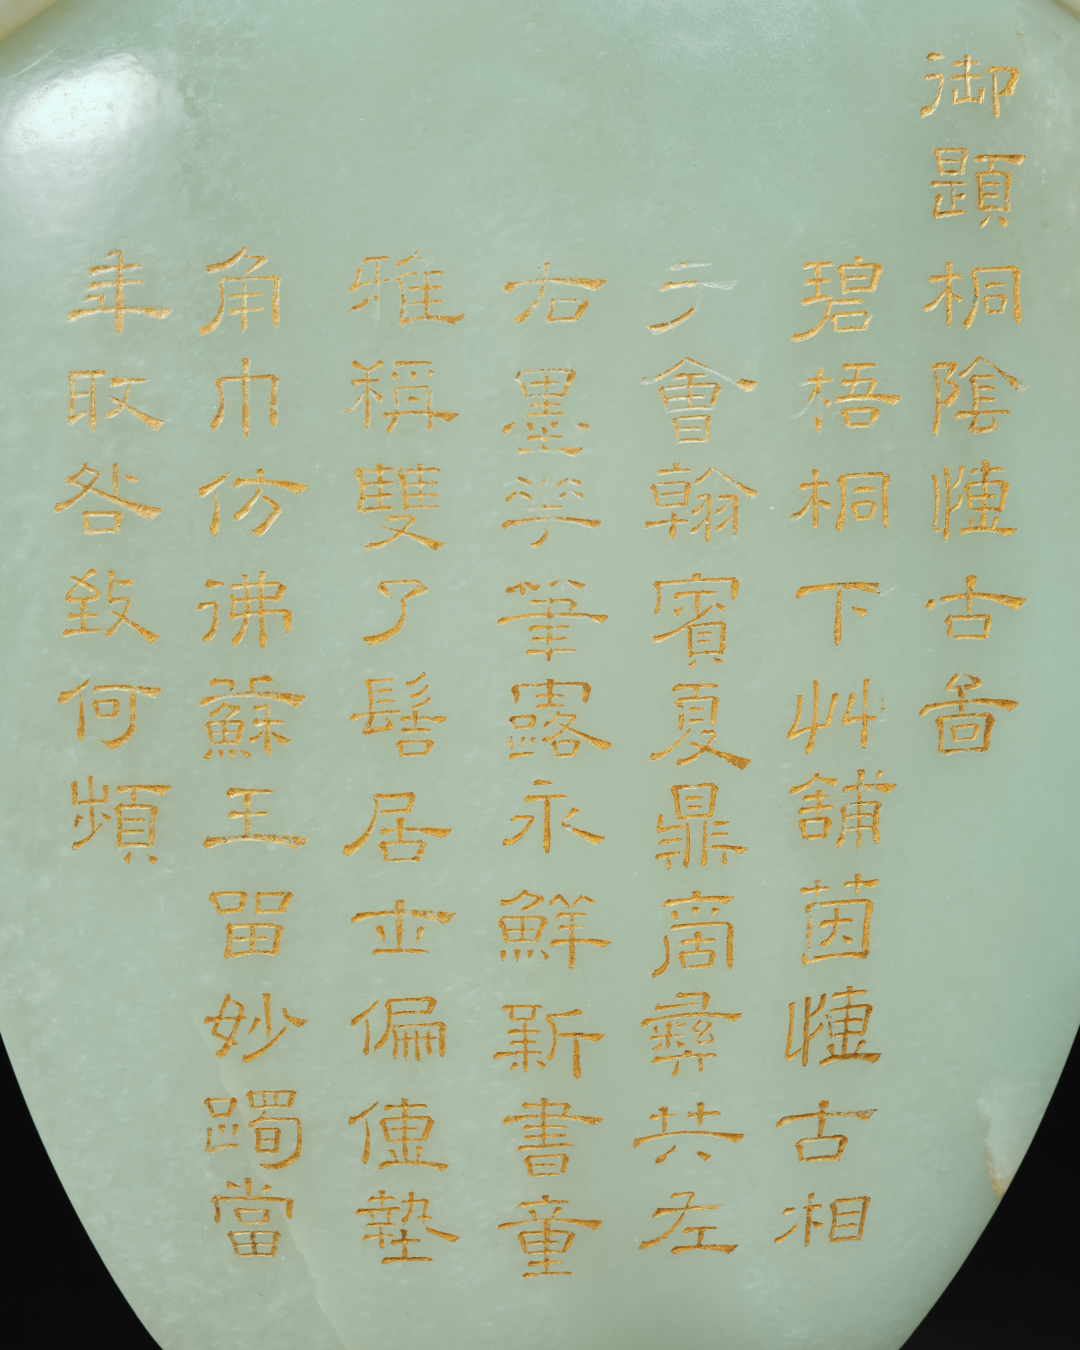 御題桐陰愽古啚
碧梧桐下艸舖茵愽古相
于會翰賓夏鼎商彝共左
右墨華筆露永鮮新書童
雅稱雙了髻居士偏傳墊
角巾仿彿蘇王留妙躅當
年取咎致何頻